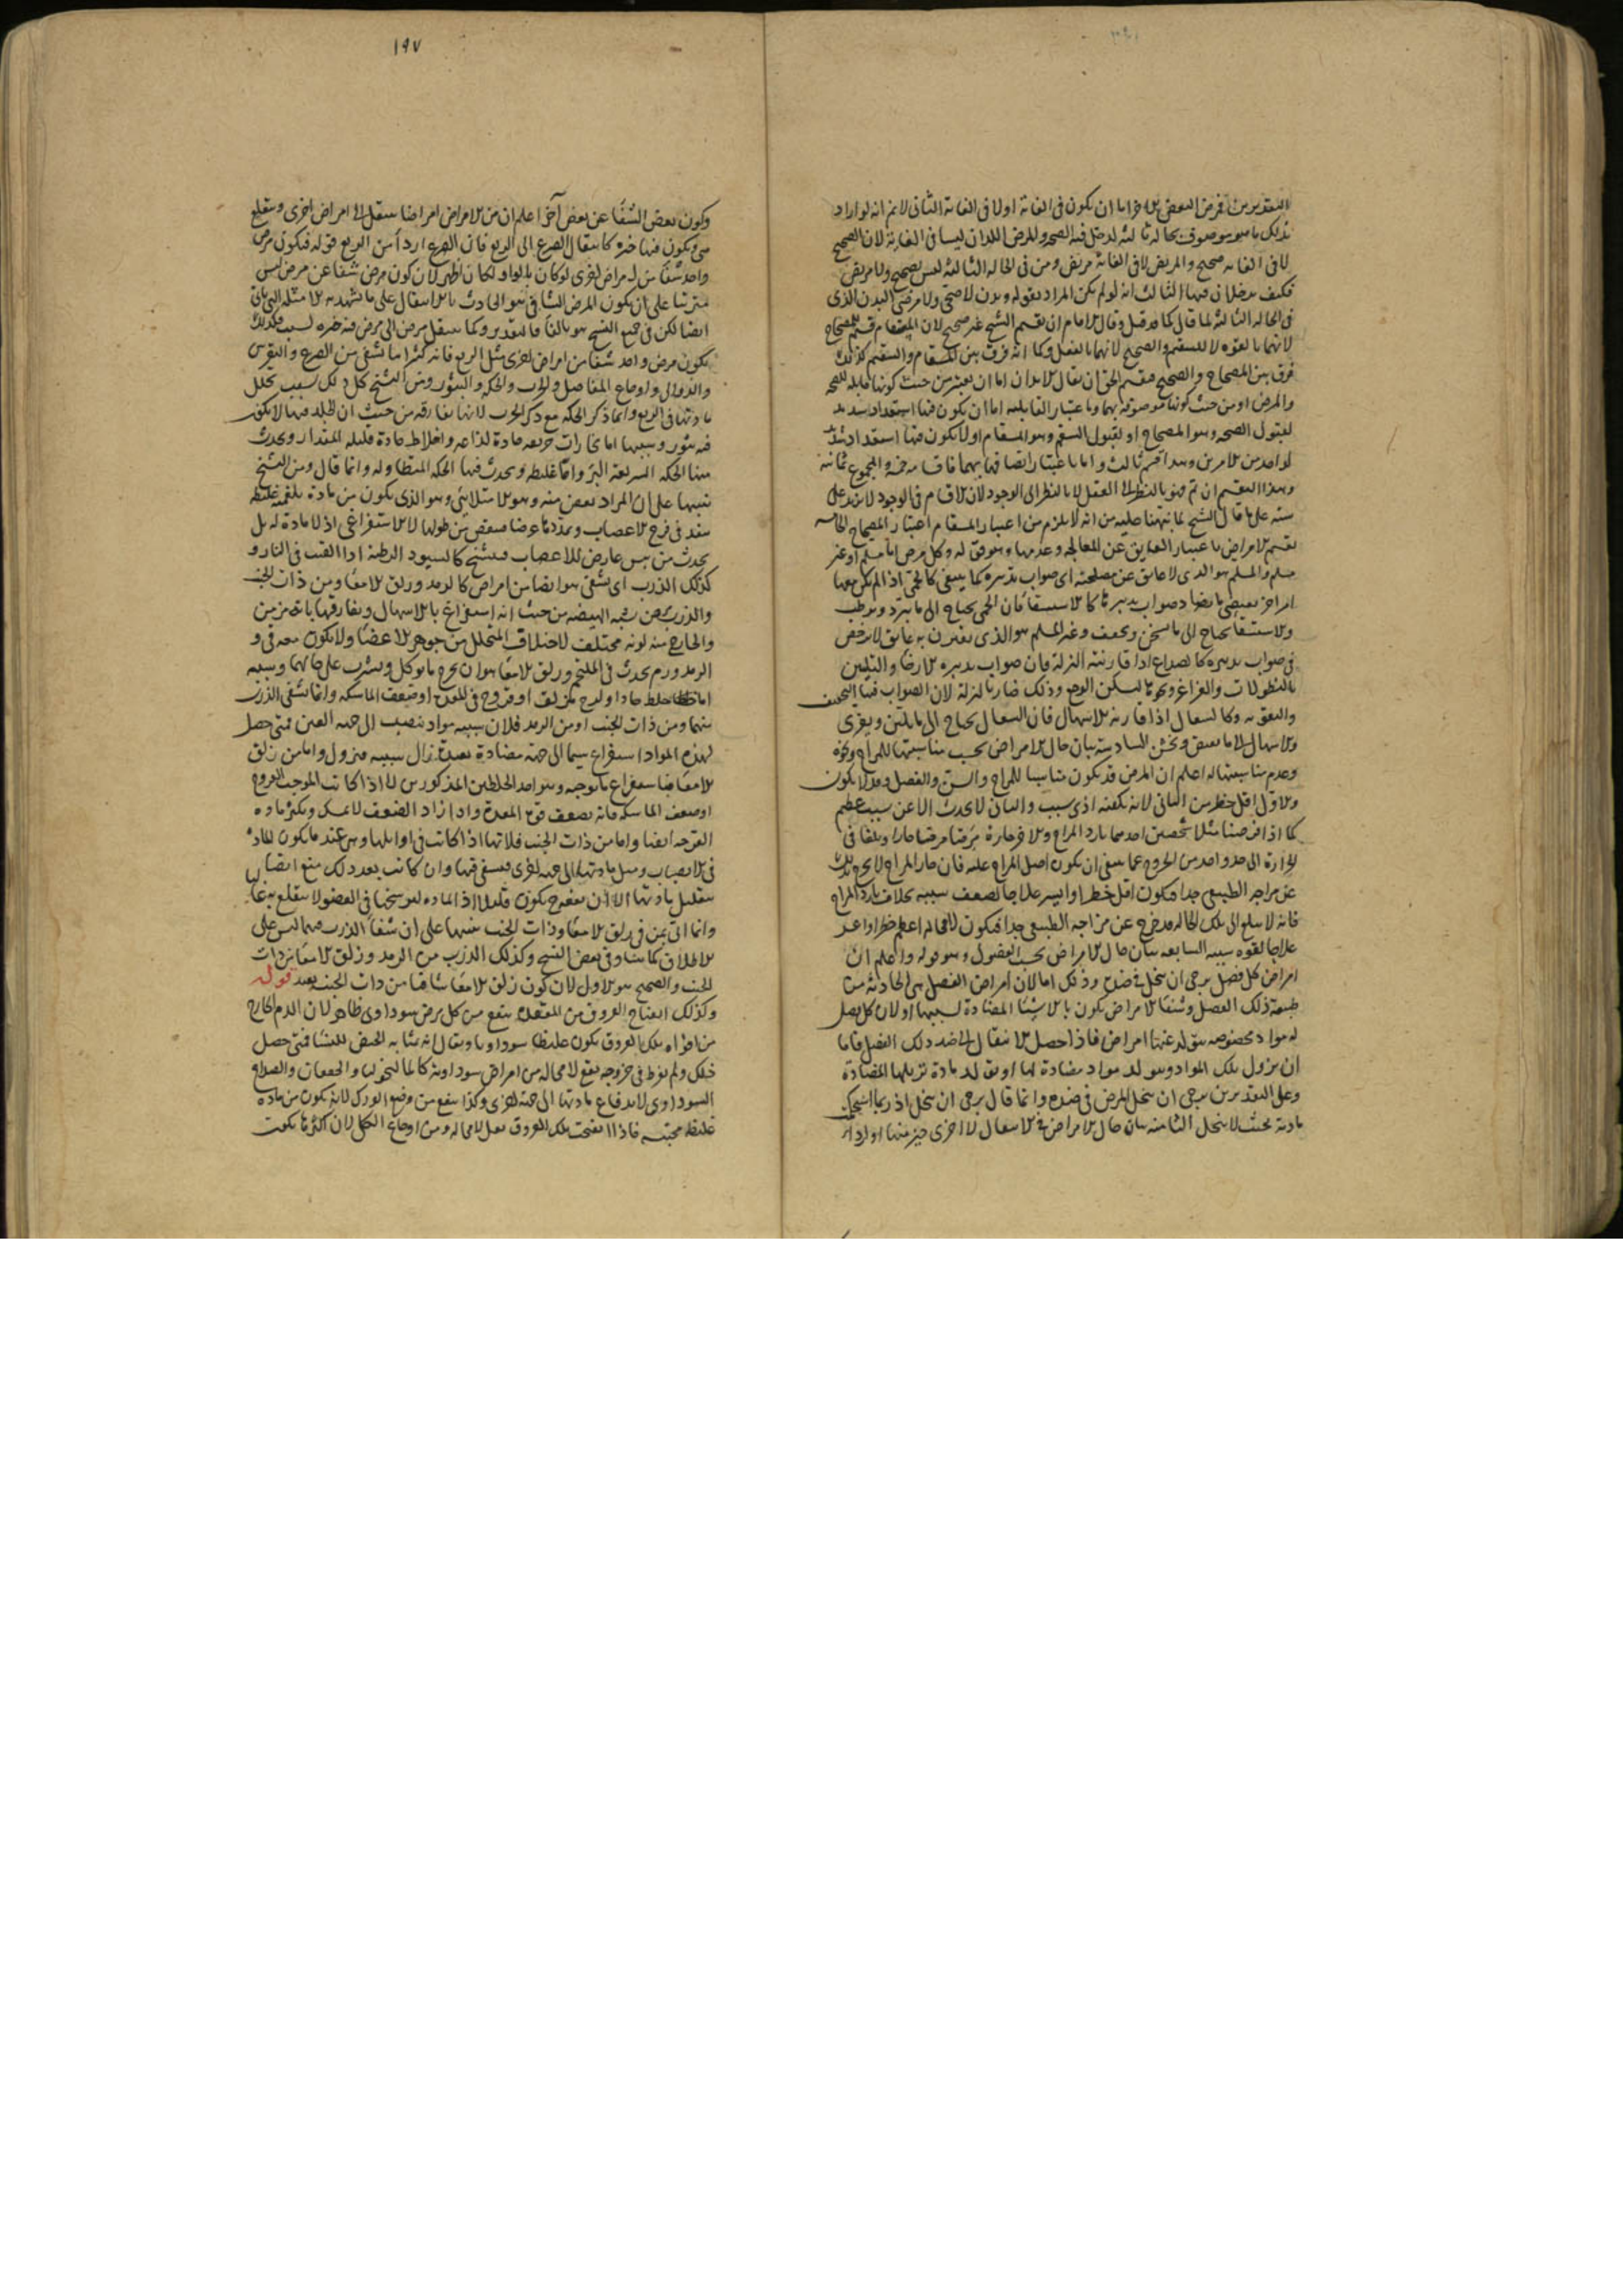 التقديرين فرض البعض الآخر اما ان يكون فى الغاية اولا فى الغاية الثانى لانم انه لو اراد
بذلك ما هو موصوف بحالة ثالثة لدخل فيه الصحة والمرض اللذان ليسا فى الغاية لان الصحيح
لا فى الغاية صحيح والمريض لا فى الغاية مريض ومن فى الحالة الثالثة ليس بصحيح ولا مريض
فكيف يدخلان فيها الثالث انه لو لم يكن المراد بقوله وبدن لا صحى ولا مرضى البدن الذى
فى الحالة الثالثة لما قال كما قد قيل وقال الامام ان تقسيم الشيخ غير صحيح لان المسقام قسيم للمصحاح
لانهما بالقوة لا للسقيم والصحيح لانهما بالفعل وكما انه فرق بين المسقام والسقيم كذلك
فرق بين المصحاح والصحيح فقسم الحق ان يقال الابدان اما ان يعتبر من حيث كونها قابلة للصحة
والمرض او من حيث كونها موصوفة بهما وباعتبار القابلية اما ان يكون فيها استعداد شديد
لقبول الصحة وهو المصحاح او لقبول السقم وهو المسقام او لا يكون فيها استعداد شديد
لواحد من الامرين وهذا قسم ثالث واما باعتبار اتصافها بهما فاقسامه خمسة والمجموع ثمانية
وهذا التقسيم ان تم فهو بالنظر الى العقل لا بالنظر الى الوجود لان الاقسام فى الوجود لا يزيد على
ستة على ما قال الشيخ لما نبهنا عليه من انه لا يلزم من اعتبار المسقام اعتبار المصحاح الخامسة
تقسيم الامراض باعتبار العايق عن المعالجة وعدمها وهو قوله وكل مرض اما مسلم او غير
مسلم والمسلم هو الذى لا عايق عن مصلحته اى صواب تدبيره كما ينبغى كالحمى اذا لم يكن معها
امراض يقتضى ما يضاد صواب تدبيرها كالاستسقا فان الحمى يحتاج الى ما يبرد ويرطب
والاستسقا يحتاج الى ما يسخن ويجفف وغير المسلم هو الذى يقترن به عايق لا يرخص
فى صواب تدبيره كالصداع اذا قارنته النزلة فان صواب تدبيره الارخا والتليين
بالنطولات والغراغر ونحوها ليسكن الوجع وذلك ضار بالنزلة لان الصواب فيها التجفيف
والتقوية وكالسعال اذا قارنه الاسهال فان السعال يحتاج الى ما يلين ويغرى
والاسهال الى ما يقبض ويخشن السادسة بيان حال الامراض بحسب مناسبتها للمزاج ونحوه
وعدم مناسبتها له اعلم ان المرض قد يكون مناسبا للمزاج والسن والفصل وقد لا يكون
والاول اقل خطرا من الثانى لانه يكفيه ادنى سبب والثانى لا يحدث الا عن سبب عظيم
كما اذا فرضنا مثلا شخصين احدهما بارد المزاج والاخر حاره مرضا مرضا حارا وبلغا فى
الحرارة الى حد واحد من الخروج عما ينبغى ان يكون اصل المزاج عليه فان حار المزاج لا يخرج بذلك
عن مزاجه الطبيعى جدا فيكون اقل خطرا وايسر علاجا لضعف سببه بخلاف بارد المزاج
فانه لا يبلغ الى تلك الحالة وقد خرج عن مزاجه الطبيعى جدا فيكون لا محالة اعظم خطرا واعسر
علاجا لقوة سببه السابعة بيان حال الامراض بحسب الفصول وهو قوله واعلم ان
امراض كل فصل يرجى ان تنحل فى ضده وذلك اما لان امراض الفصل هى الحادثة من
طبيعة ذلك الفصل وشفا الامراض يكون بالاشيا المضادة لسببها او لان كل فصل
له مواد مخصوصة يتولد عنها امراض فاذا حصل الانتقال الى ضد ذلك الفصل فاما
ان يزول تلك المواد وهو لد مواد مضادة لها او يتولد مادة تزيلها المضادة
وعلى التقديرين يرجى ان ينحل المرض فى ضده وانما قال يرجى ان ينحل اذ ربما استحكمت
مادته بحيث لا ينحل الثامنة بيان حال الامراض فى الانتقال الى اخرى خير منها او اردا
١٩٧
وكون بعض الشفا عن بعض آخر اعلم ان من الامراض امراضا ينتقل الى امراض اخرى وينقلع
هى ويكون فيها خيرة كانتقال الصرع الى الربع فان الصرع اردأ من الربع قوله فيكون مرض
واحد شفا من امراض اخرى لو كان بالواو لكان اظهر لان كون مرض شفا عن مرض ليس
مترتبا على ان يكون المرض الشافى هو الحادث بالانتقال على ما يشهد به الامثلة التى تاتى
ايضا لكن فى جميع النسخ هو بالفا فالتقدير وكما ينتقل مرض الى مرض فيه خيرة لسبب فكذلك
يكون مرض واحد شفا من امراض اخرى مثل الربع فانه كثيرا ما تشفى من الصرع والنقرس
والدوالى واوجاع المفاصل والجرب والحكة والبثور ومن التشنج كل ذلك بسبب تحلل
مادتها فى الربع وانما ذكر الحكة مع ذكر الجرب لانها تفارقه من حيث ان الجلد فيها لا يكون
فيه بثور وسببها اما بخارات حريفة حادة لذاعة واخلاط حادة قليلة المقدار ويحدث
منها الحكة السريعة البرء واما غليظة ويحدث فيها الحكة المتطاولة وانما قال ومن التشنج
تنبيها على ان المراد بعض منه وهو الامتلائى وهو الذى يكون من مادة بلغمية غليظة
تنفذ فى فرج الاعصاب ويمددها عرضا فينقص من طولها لا الاستفراغى اذ لا مادة له بل
يحدث من يبس عارض للاعصاب فيتشنج كالسيور الرطبة اذا القيت فى النار و
كذلك الذرب اى يشفى هو ايضا من امراض كالرمد وزلق الامعا ومن ذات الجنب
والذرب يشبه الهيضة من حيث انه استفراغ بالاسهال ويفارقها بانه مزمن
والخارج منه لونه مختلف لاختلاف المتحلل من جوهر الاعضا ولا يكون معه قى و
الرمد ورم يحدث فى الملتحم وزلق الامعا هو ان يخرج ما يوكل ويشرب على حالهما وسببه
اما خلط حاد او لزج يزلق او قروح فى المعدة او ضعف الماسكة وانما تشفى الذرب
منهما ومن ذات الجنب اومن الرمد فلان سببه مواد تنصب الى جهة العين فمتى حصل
لهذه المواد استفراغ سيما الى جهة مضادة بعيدة زال سببه فيزول واما من زلق
الامعا فباستفراغ ما يوجبه وهو احد الخلطين المذكورين اما اذا كانت الموجب القروح
او ضعف الماسكة فانه يضعف قوة المعدة واذا زاد الضعف لا يمسك ويكثر مادة
القرحة ايضا واما من ذات الجنب فلانها اذا كانت فى اوايلها وهى عند ما يكون المادة
فى الانصباب ويميل مادتها الى جهة اخرى فيشفى فيها وان كانت بعد ذلك منع ايضا
بتقليل مادتها الا ان نفعه يكون قليلا اذ المادة لرسوخها فى العضو لا ينقلع به غالبا
وانما اتى بمن فى زلق الامعا وذات الجنب تنبيها على ان شفا الذرب منهما ليس على
الاطلاق كما بينا وفى بعض النسخ وكذلك الذرب من الرمد وزلق الامعا من ذات
الجنب والصحيح هو الاول لان كون زلق الامعا شافيا من ذات الجنب بعيد قوله
وكذلك انفتاح العروق من المقعدة ينفع من كل مرض سوداوى ظاهر لان الدم الخارج
من افواه تلك العروق يكون غليظا سوداويا ويقال انه بمثابة الحيض للنسا فمتى حصل
ذلك ولم يفرط فى خروجه نفع لا محالة من امراض سوداوية كالمالنخوليا والخفقان والصداع
السوداوى لاندفاع مادتها الى جهة اخرى وكذا ينفع من وجع الورك لانه يكون من مادة
غليظة محتبسة فاذا انفتحت تلك العروق تقل لا محالة ومن اوجاع الكلى لان اكثرها يكون